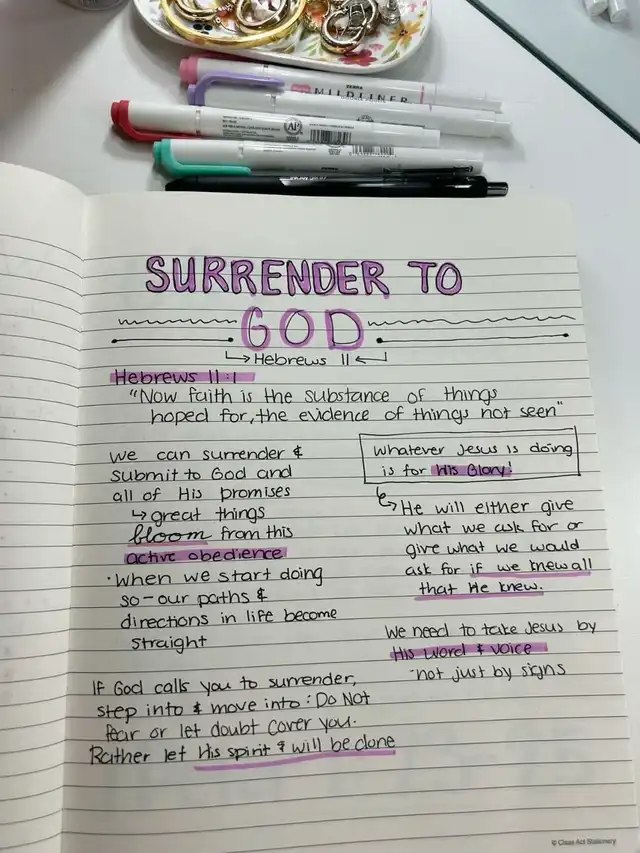 ZEBRA
MILDLINER
SURRENDER TO
GOD
Hebrews 11
Hebrews 11:1
"Now faith is the substance of things
hoped for, the evidence of things not seen"
we can surrender &
submit to God and
all of His promises
↳ great things
bloom from this
active obedience
· When we start doing
so - our paths &
directions in life become
straight
Whatever Jesus is doing
is for His Glory!
↳ He will either give
what we ask for or
give what we would
ask for if we knew all
that He knew.
We need to take Jesus by
His word & voice
- not just by signs
If God calls you to surrender,
step into & move into: Do Not
fear or let doubt cover you.
Rather let His spirit & will be done
© Class Act Stationery